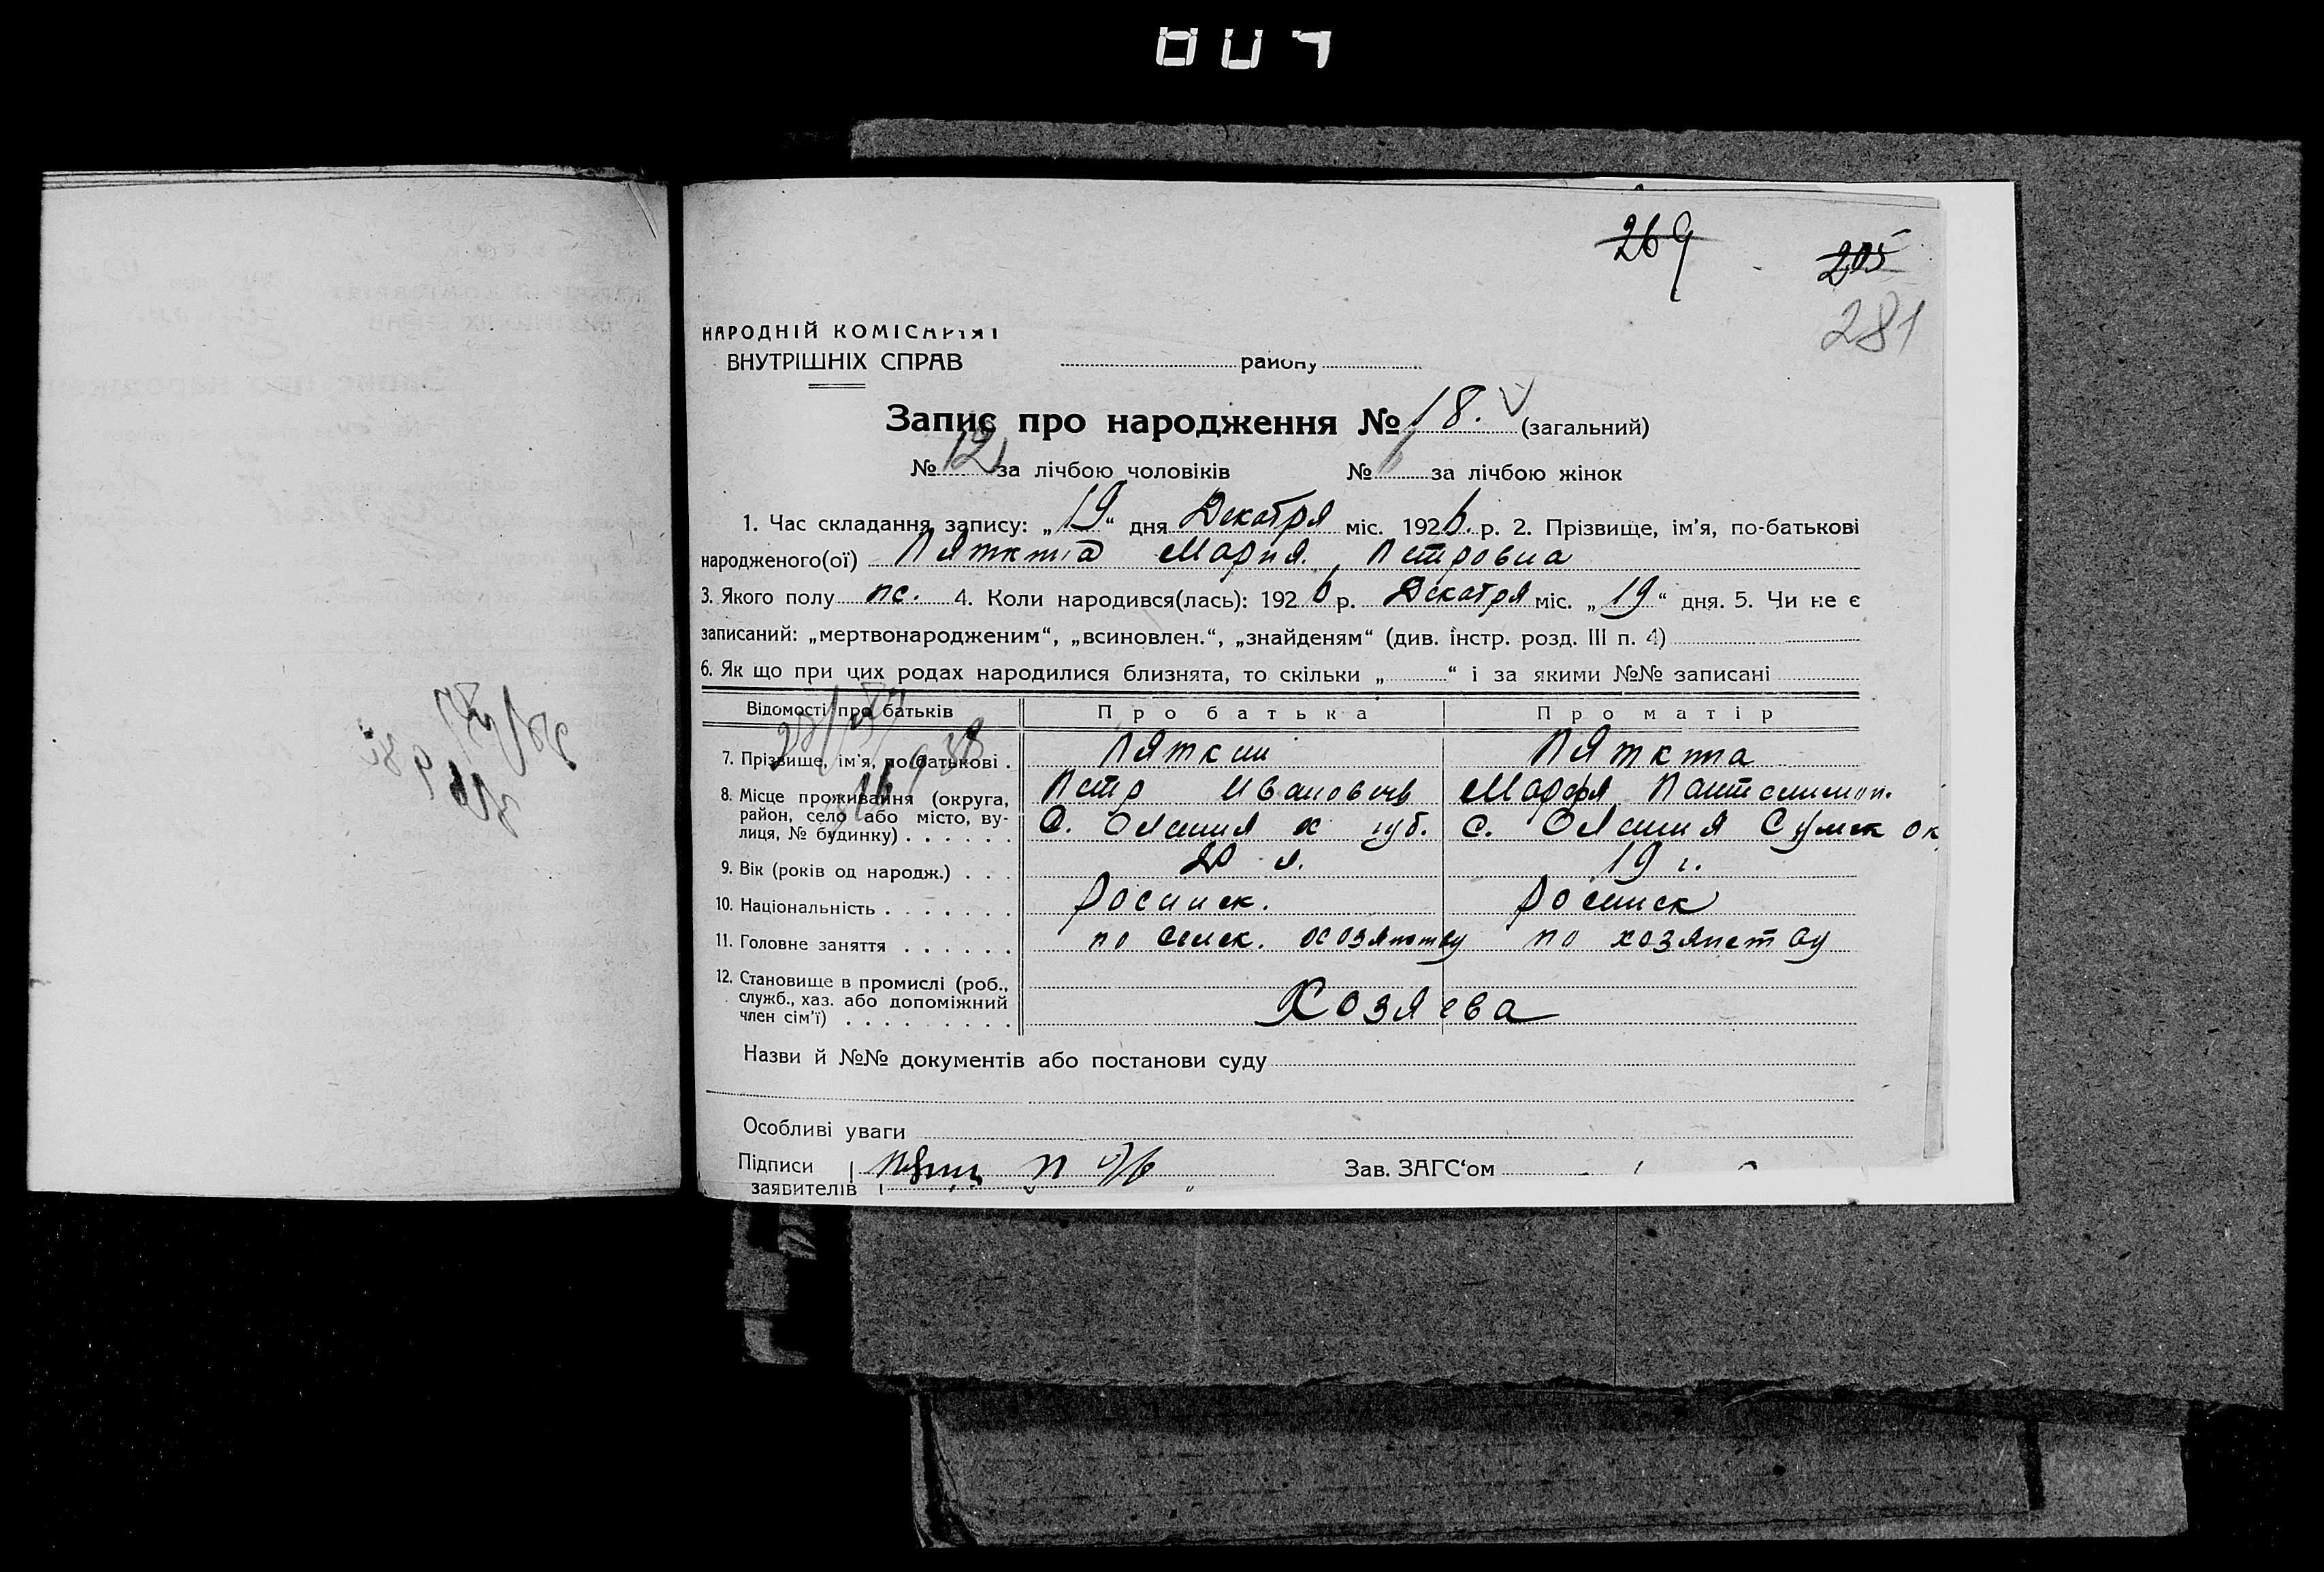 269
205
281
НАРОДНІЙ КОМІСАРІЯТ
ВНУТРІШНІХ СПРАВ
району
Запис про народження № 18. (загальний)
№ 12 за лічбою чоловіків № за лічбою жінок
1. Час складання запису: „19“ дня Декабря міс. 1926. р. 2. Прізвище, ім'я, по-батькові
народженого(ої) Пяткина Мария Петровна
3. Якого полу 4. Коли народився(лась): 1926 р. Декабря міс. „19“ дня. 5. Чи не є
записаний: „мертвонародженим“, „всиновлен.“, „знайденям“ (див. інстр. розд. III п. 4)
6. Як що при цих родах народилися близнята, то скільки „ “ і за якими №№ записані
Відомості про батьків Про батька Про матір
7. Прізвище, ім'я, по батькові . Пяткин Пяткина
Петр Иванович Марфя
8. Місце проживання (округа,
район, село або місто, ву-
лиця, № будинку) . . . . . . С. губ. с. Сумск ок
9. Вік (років од народж.) . . . 20 19 г.
10. Національність . . . . . . . Росииск. Росииск
11. Головне заняття . . . . . . по сельск. хозяйству по хозяйству
12. Становище в промислі (роб.,
служб., хаз. або допоміжний
член сім'ї) . . . . . . . . . Хозяева
Назви й №№ документів або постанови суду
Особливі уваги
Підписи
заявителів
Зав. ЗАГС'ом